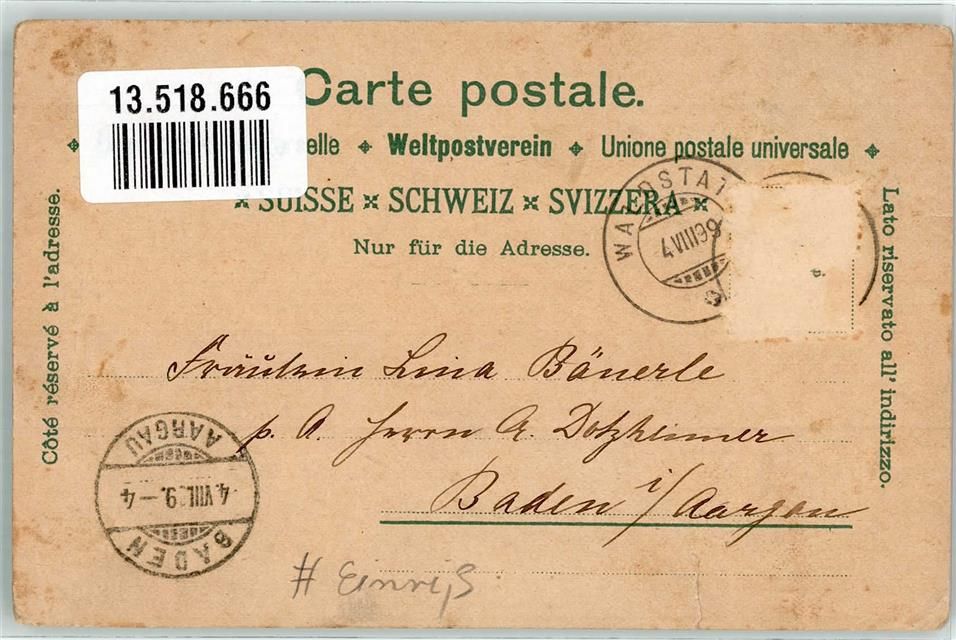 13.518.666
Carte postale.
elle ⌖ Weltpostverein ⌖ Unione postale universale
SUISSE × SCHWEIZ × SVIZZERA
Nur für die Adresse.
Côté réservé à l'adresse.
Lato riservato all' indirizzo.
4 VIII 99
p.
Fräulein Lina Bäuerle
p. A. Herrn A. Dotzheimer
Baden i/Aargau
BADEN
4.VIII. 9.–4
AARGAU
# Einriß